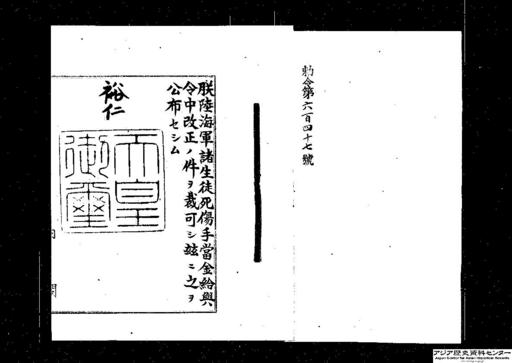 勅令第六百四十七號
朕陸海軍諸生徒死傷手當金給與
令中改正ノ件ヲ裁可シ玆ニ之ヲ
公布セシム
裕仁
天皇
御璽
アジア歴史資料センター
Japan Center for Asian Historical Records